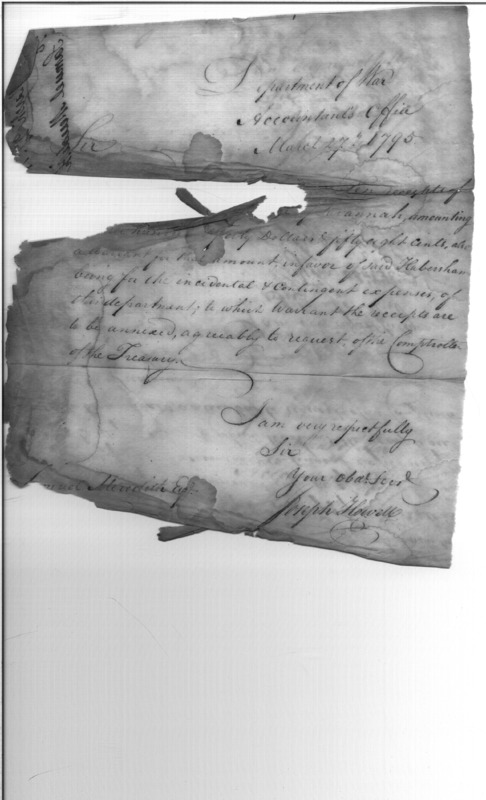 Department of War
Accountants Office
March 27th 1795
Sir
ten receipts of
Savannah, amounting
Dollars & fifty eight Cents, also
a Warrant for that amount, in favor of said Habersham
being for the incidental & Contingent expenses, of
this department; to which Warrant the receipts are
to be annexed, agreeably to request, of the Comptroller
of the Treasury.
I am very respectfully
Sir
Your obdt Servt
Joseph Howell
Samuel Meredith Esqr